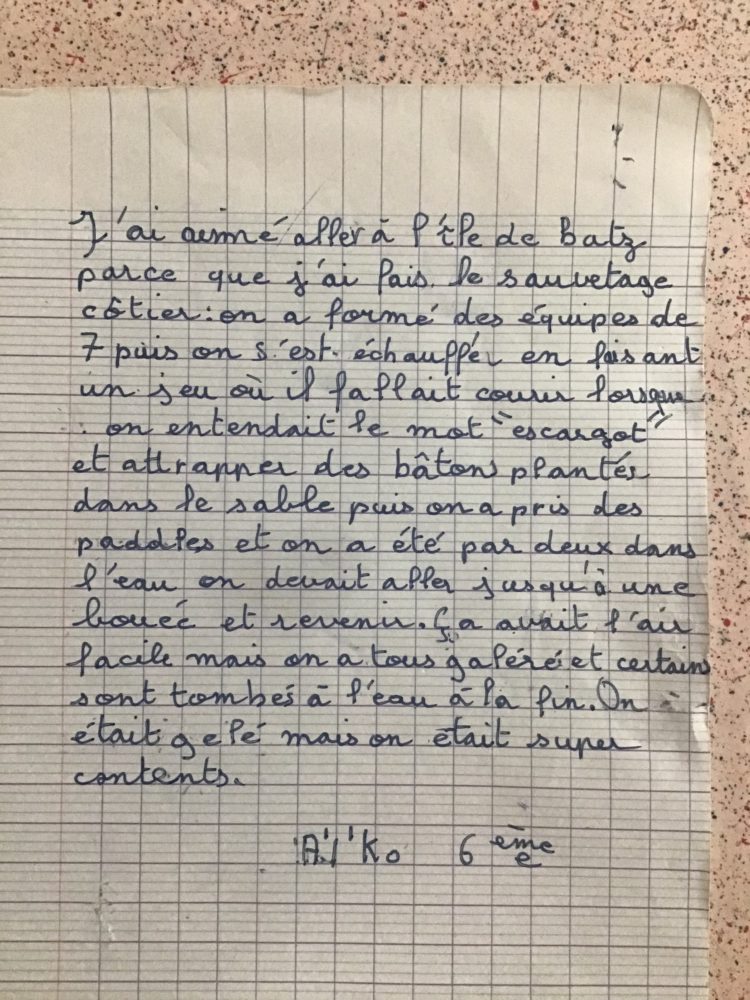 J'ai aimé aller à l'île de Batz
parce que j'ai fais le sauvetage
côtier : on a formé des équipes de
7 puis on s'est échauffér en faisant
un jeu où il fallait courir lorsque
on entendait le mot "escargot"
et attrapper des bâtons plantés
dans le sable puis on a pris des
paddles et on a été par deux dans
l'eau on devait aller jusqu'à une
bouée et revenir. Ça avait l'air
facile mais on a tous galéré et certains
sont tombés à l'eau à la fin. On
était gelé mais on était super
contents.
6 ème e